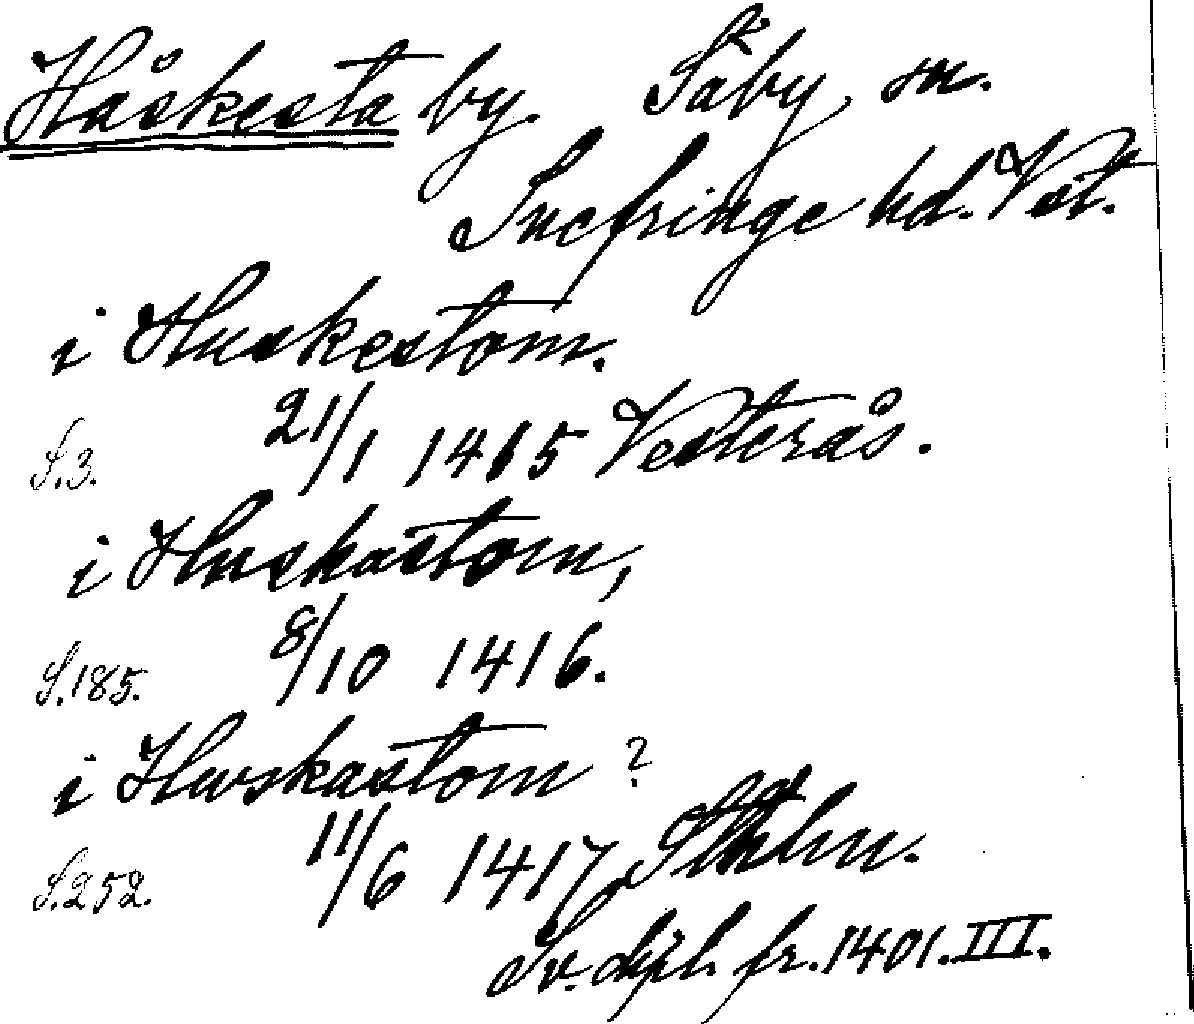 Håskesta by. Säby sn.
Snefringe hd. Vstl.
i Huskestom.
S.3. 21/1 1415 Vesterås.
i Huskastom,
S.185. 8/10 1416.
i Huvskastom ?
S.252. 11/6 1417 Sthlm.
Sv. dipl. fr. 1401. III.